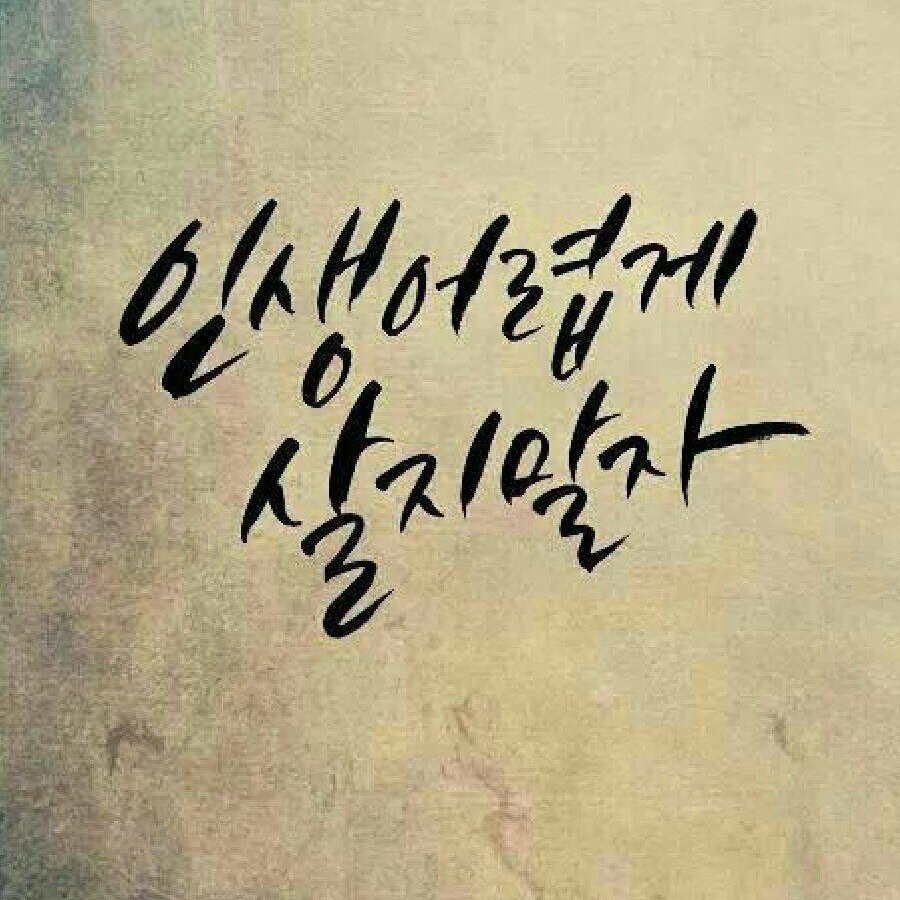 인생어렵게
살지말자